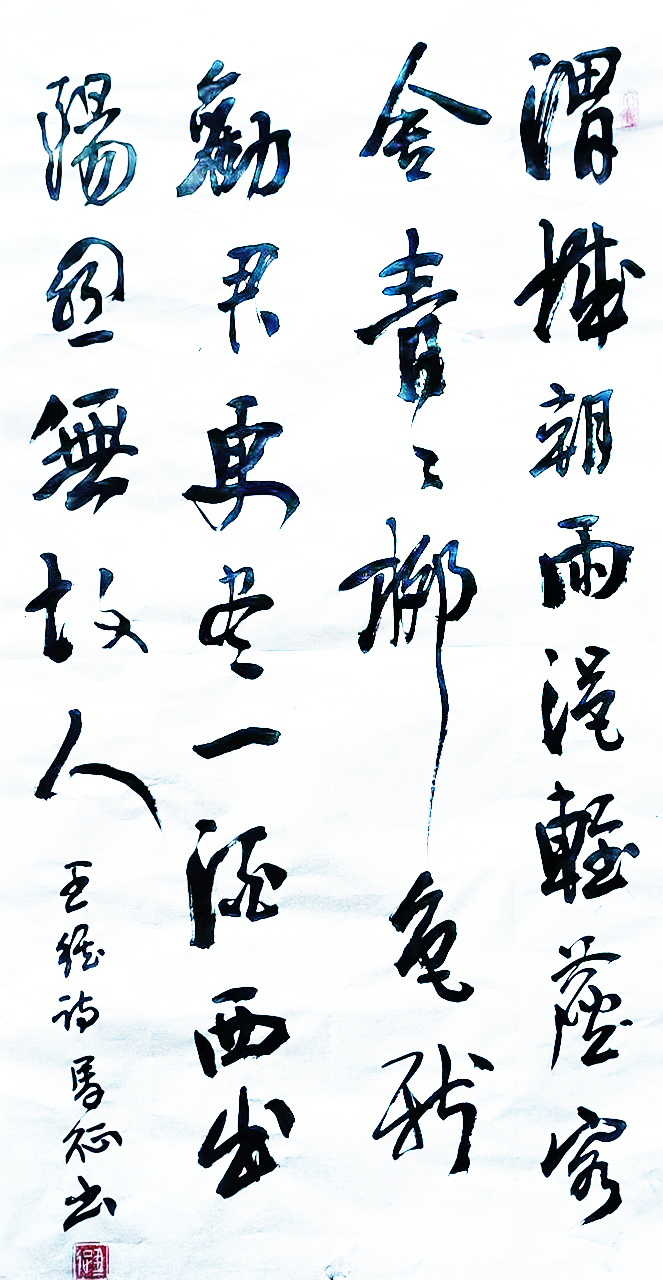 渭城朝雨浥輕塵客
舍青々柳色新
勸君更尽一酒西出
陽關無故人
王維詩馬征书